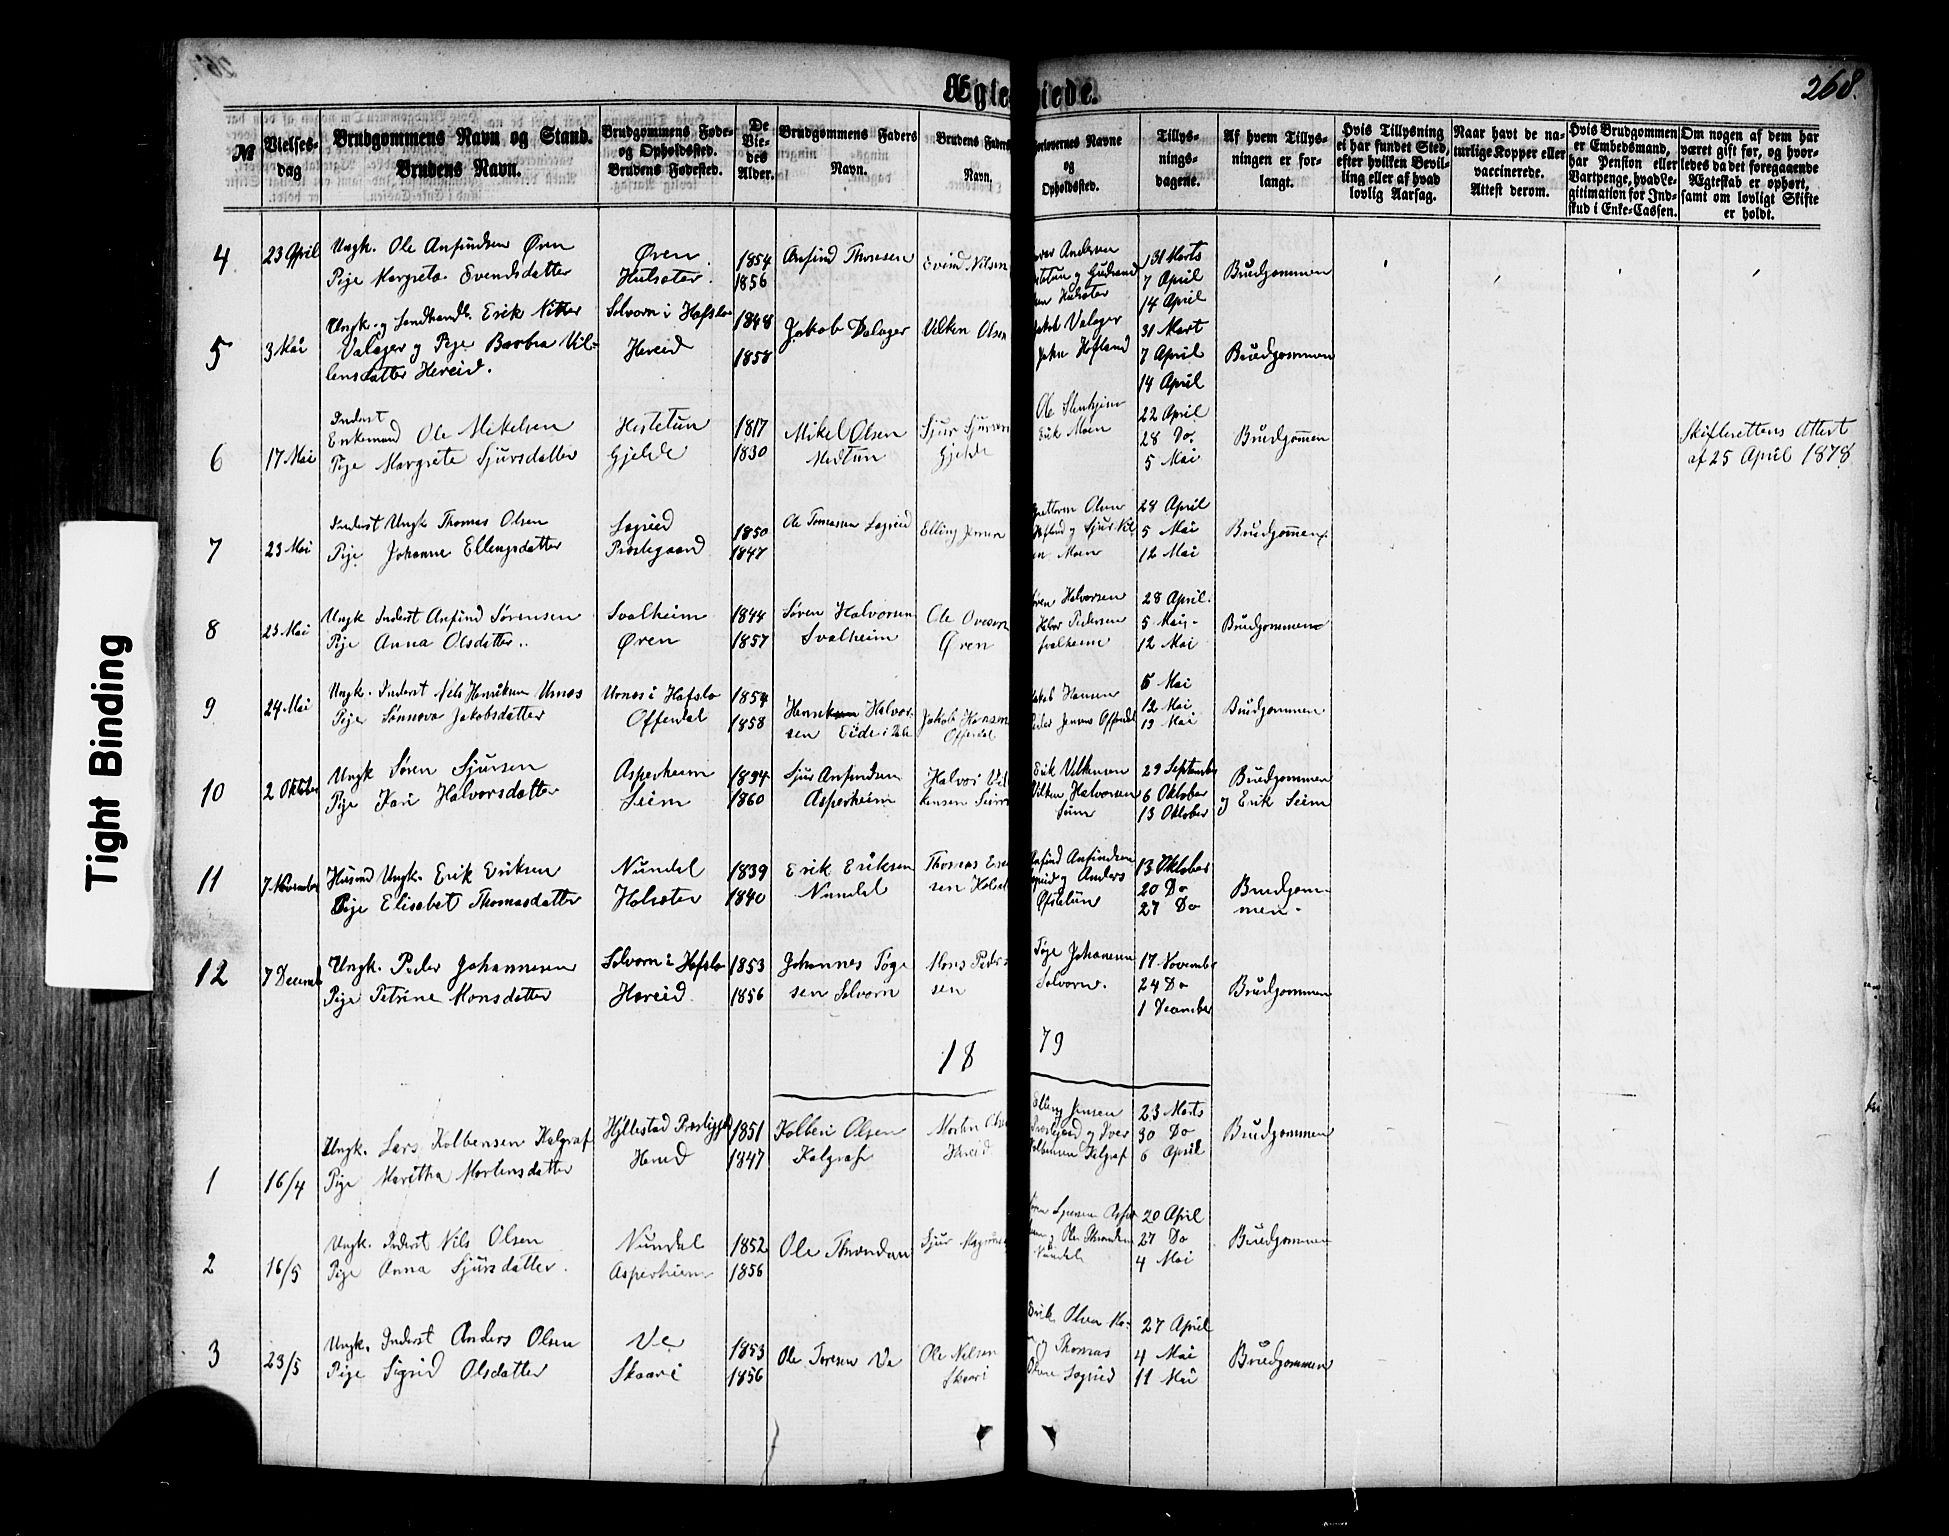 268.
Ægteviede.
№
Vielses-
dag
Brudgommens Navn og Stand.
Brudens Navn.
Brudgommens Føde-
og Opholdssted.
Brudens Fødested.
De
Vie-
des
Alder.
Brudgommens Faders
Navn.
Brudens Faders
Navn.
Forlovernes Navne
og
Opholdssted.
Tillys-
nings-
dagene.
Af hvem Tillys-
ningen er for-
langt.
Hvis Tillysning
ei har fundet Sted,
efter hvilken Bevil-
ling eller af hvad
lovlig Aarsag.
Naar havt de na-
turlige Kopper eller
vaccinerede.
Attest derom.
Hvis Brudgommen
er Embedsmand,
har Pension eller
Vartpenge, hvad Le-
gitimation for Ind-
skud i Enke-Cassen.
Om nogen af dem har
været gift før, og hvor-
ledes da det foregaaende
Ægteskab er ophørt,
samt om lovligt Skifte
er holdt.
4
23 April
Ungk. Ole Anfindsen Øren
Pige Margreta Evendsdatter
Øren
Hulsøter
1854
1856
Anfind Thoresen
Evind Nilsen
31 Marts
7 April
14 April
Brudgommen
5
3 Mai
Ungk. og Landhandl. Erik
Valager og Pige Barbra Vil-
lensdatter Hereid.
Solvorn i Hafslo
Hereid
1848
1858
Jakob Valager
Vilken Olsen
Jakob Valager
Hofland
31 Mart
7 April
14 April
Brudgommen
6
17 Mai
Inderst
Enkemand Ole Mikelsen
Pige Margrete Sjursdatter
Hestetun
Gjelde
1817
1830
Mikel Olsen
Midtun
Sjur Sjursen
Gjelde
Ole
Erik Moen
22 April
28 Do.
5 Mai
Brudgommen
Skifterettens Attest
af 25 April 1878
7
23 Mai
Inderst Ungk Thomas Olsen
Pige Johanne Ellengsdatter
Lægreid
Prestegaard
1850
1847
Ole Tomassen Lægreid
Elling Jensen
Guttorm Olsen
Hofland og Sjur Vil
en Moen
28 April
5 Mai
12 Mai
Brudgommen.
8
23 Mai
Ungk Inderst Anfind Sørensen
Pige Anna Olsdatter.
Svalheim
Øren
1844
1857
Søren Halvorsen
Svalheim
Ole Ovesen
Øren
Søren Halvorsen
Halvor Pedersen
Svalheim
28 April.
5 Mai
12 Mai
Brudgommen
9
24 Mai
Ungk. Inderst Nils Henriksen Urnes
Pige Sønnøva Jakobsdatter
Urnes i Hafslo
Offerdal
1854
1858
Henrik Halvor-
sen Eide i
Jakob Hansen
Offerdal
Jakob Hansen
Peder Jensen Offerdal
5 Mai
12 Mai
19 Mai
Brudgommen.
10
2 Oktober
Ungk Søren Sjursen
Pige Kari Halvorsdatter
Asperheim
Seim
1834
1860
Sjur Anfindsen
Asperheim
Halvor Vil
kensen Seim
Erik Vilkensen
Vilken Halvorsen
Seim
29 September
6 Oktober
13 Oktober
Brudgommen
og Erik Seim
11
7 November
Husmd Ungk. Erik Eriksen
Pige Elisabet Thomasdatter
Nundal
Holsæter
1839
1840
Erik Eriksen
Nundal
Thomas
sen
Anfind Anfindsen
og Anders
Øfstetun
13 Oktober
20 Do
27 Do
Brudgom-
men.
12
7 Decemb
Ungk. Peder Johannesen
Pige Petrine Monsdatter
Solvorn i Hafslo
Hereid
1853
1856
Johannes Tøge
sen Solvorn
Mons Peder
sen
Tøge Johannesen
Solvorn.
17 November
24 Do
1 December
Brudgommen
18 79
1
16/4
Ungk. Lars Kolbensen Kalgraf
Pige Maritha Mortensdatter
Hereid
1851
1847
Kolbein Olsen
Kalgraf
Morten Olsen
Hereid
Elling Jensen
Kolbensen Kalgraf
23 Marts
30 Do
6 April
Brudgommen
2
16/5
Ungk. Inderst Nils Olsen
Pige Anna Sjursdatter.
Nundal
Asperheim
1852
1856
Ole Throndsen
Sjur
Nundal
20 April
27 Do
4 Mai
Brudgommen
3
23/5
Ungk. Inderst Anders Olsen
Pige Sigrid Olsdatter
Ve
Skaari
1853
1856
Ole Toresen Ve
Ole Nilsen
Skaari
Erik Olsen
og Thomas
Olsen Lægreid
27 April
4 Mai
11 Mai
Brudgommen
Tight Binding